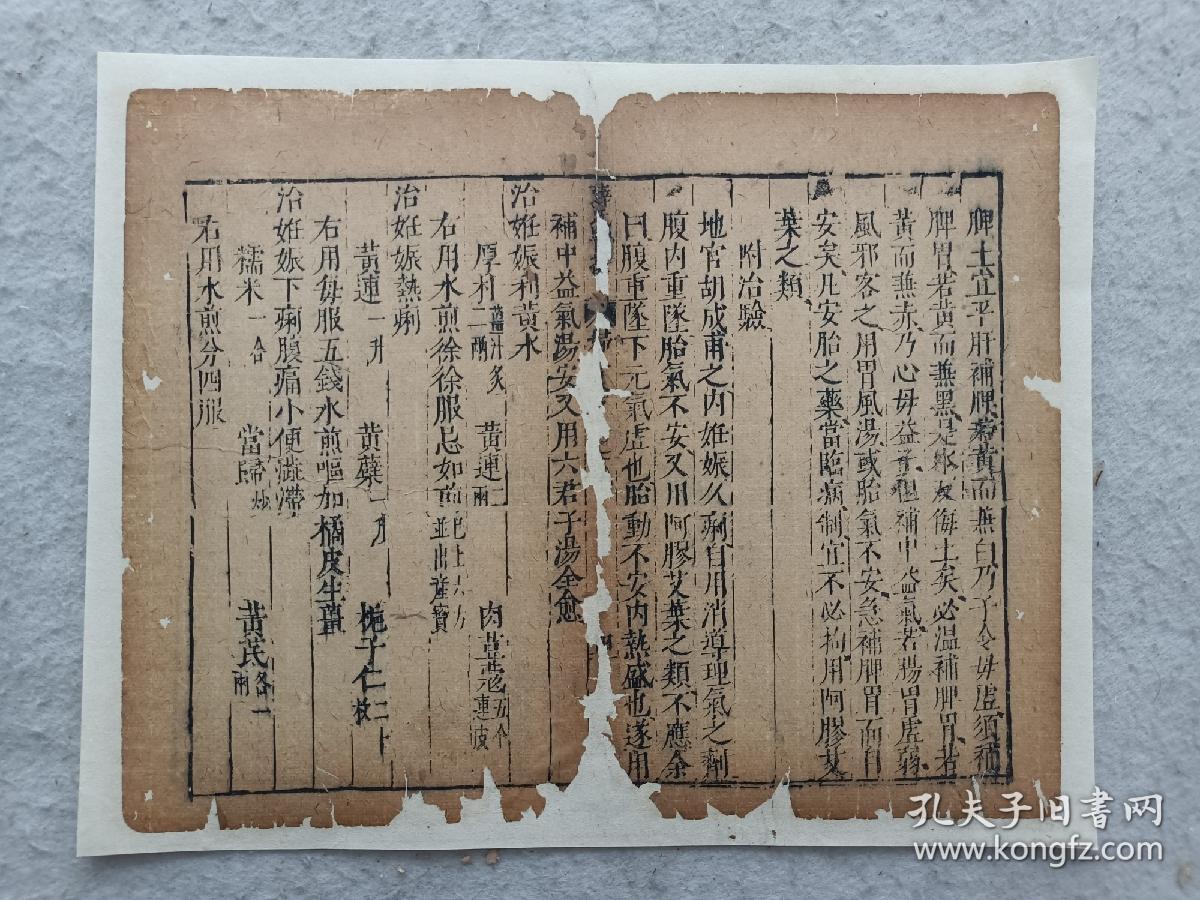 脾土宜平肝補脾若黃而兼白乃子令母虛須補
脾胃若黃而兼黑是水反侮土矣必溫補脾胃若
黃而兼赤乃心母益子但補中益氣若腸胃虛弱
風邪客之用胃風湯或胎氣不安急補脾胃而自
安矣凡安胎之藥當臨病制宜不必拘用阿膠艾
葉之類
附治驗
地官胡成甫之內妊娠久痢自用消導理氣之劑
腹內重墜胎氣不安又用阿膠艾葉之類不應余
曰腹重墜下元氣虛也胎動不安內熱盛也遂用
補中益氣湯安又用六君子湯全愈
治妊娠利黃水
厚朴二兩薑汁炙 黃連二兩 肉荳蔻五个連皮
右用水煎徐徐服忌如前 並出產寶
治妊娠熱痢
黃連一升 黃蘗一升 梔子仁二十枚
右用每服五錢水煎嘔加橘皮生薑
治妊娠下痢腹痛小便澁滯
糯米一合 當歸炒 黃芪各一兩
右用水煎分四服
孔夫子旧书网
www.kongfz.com